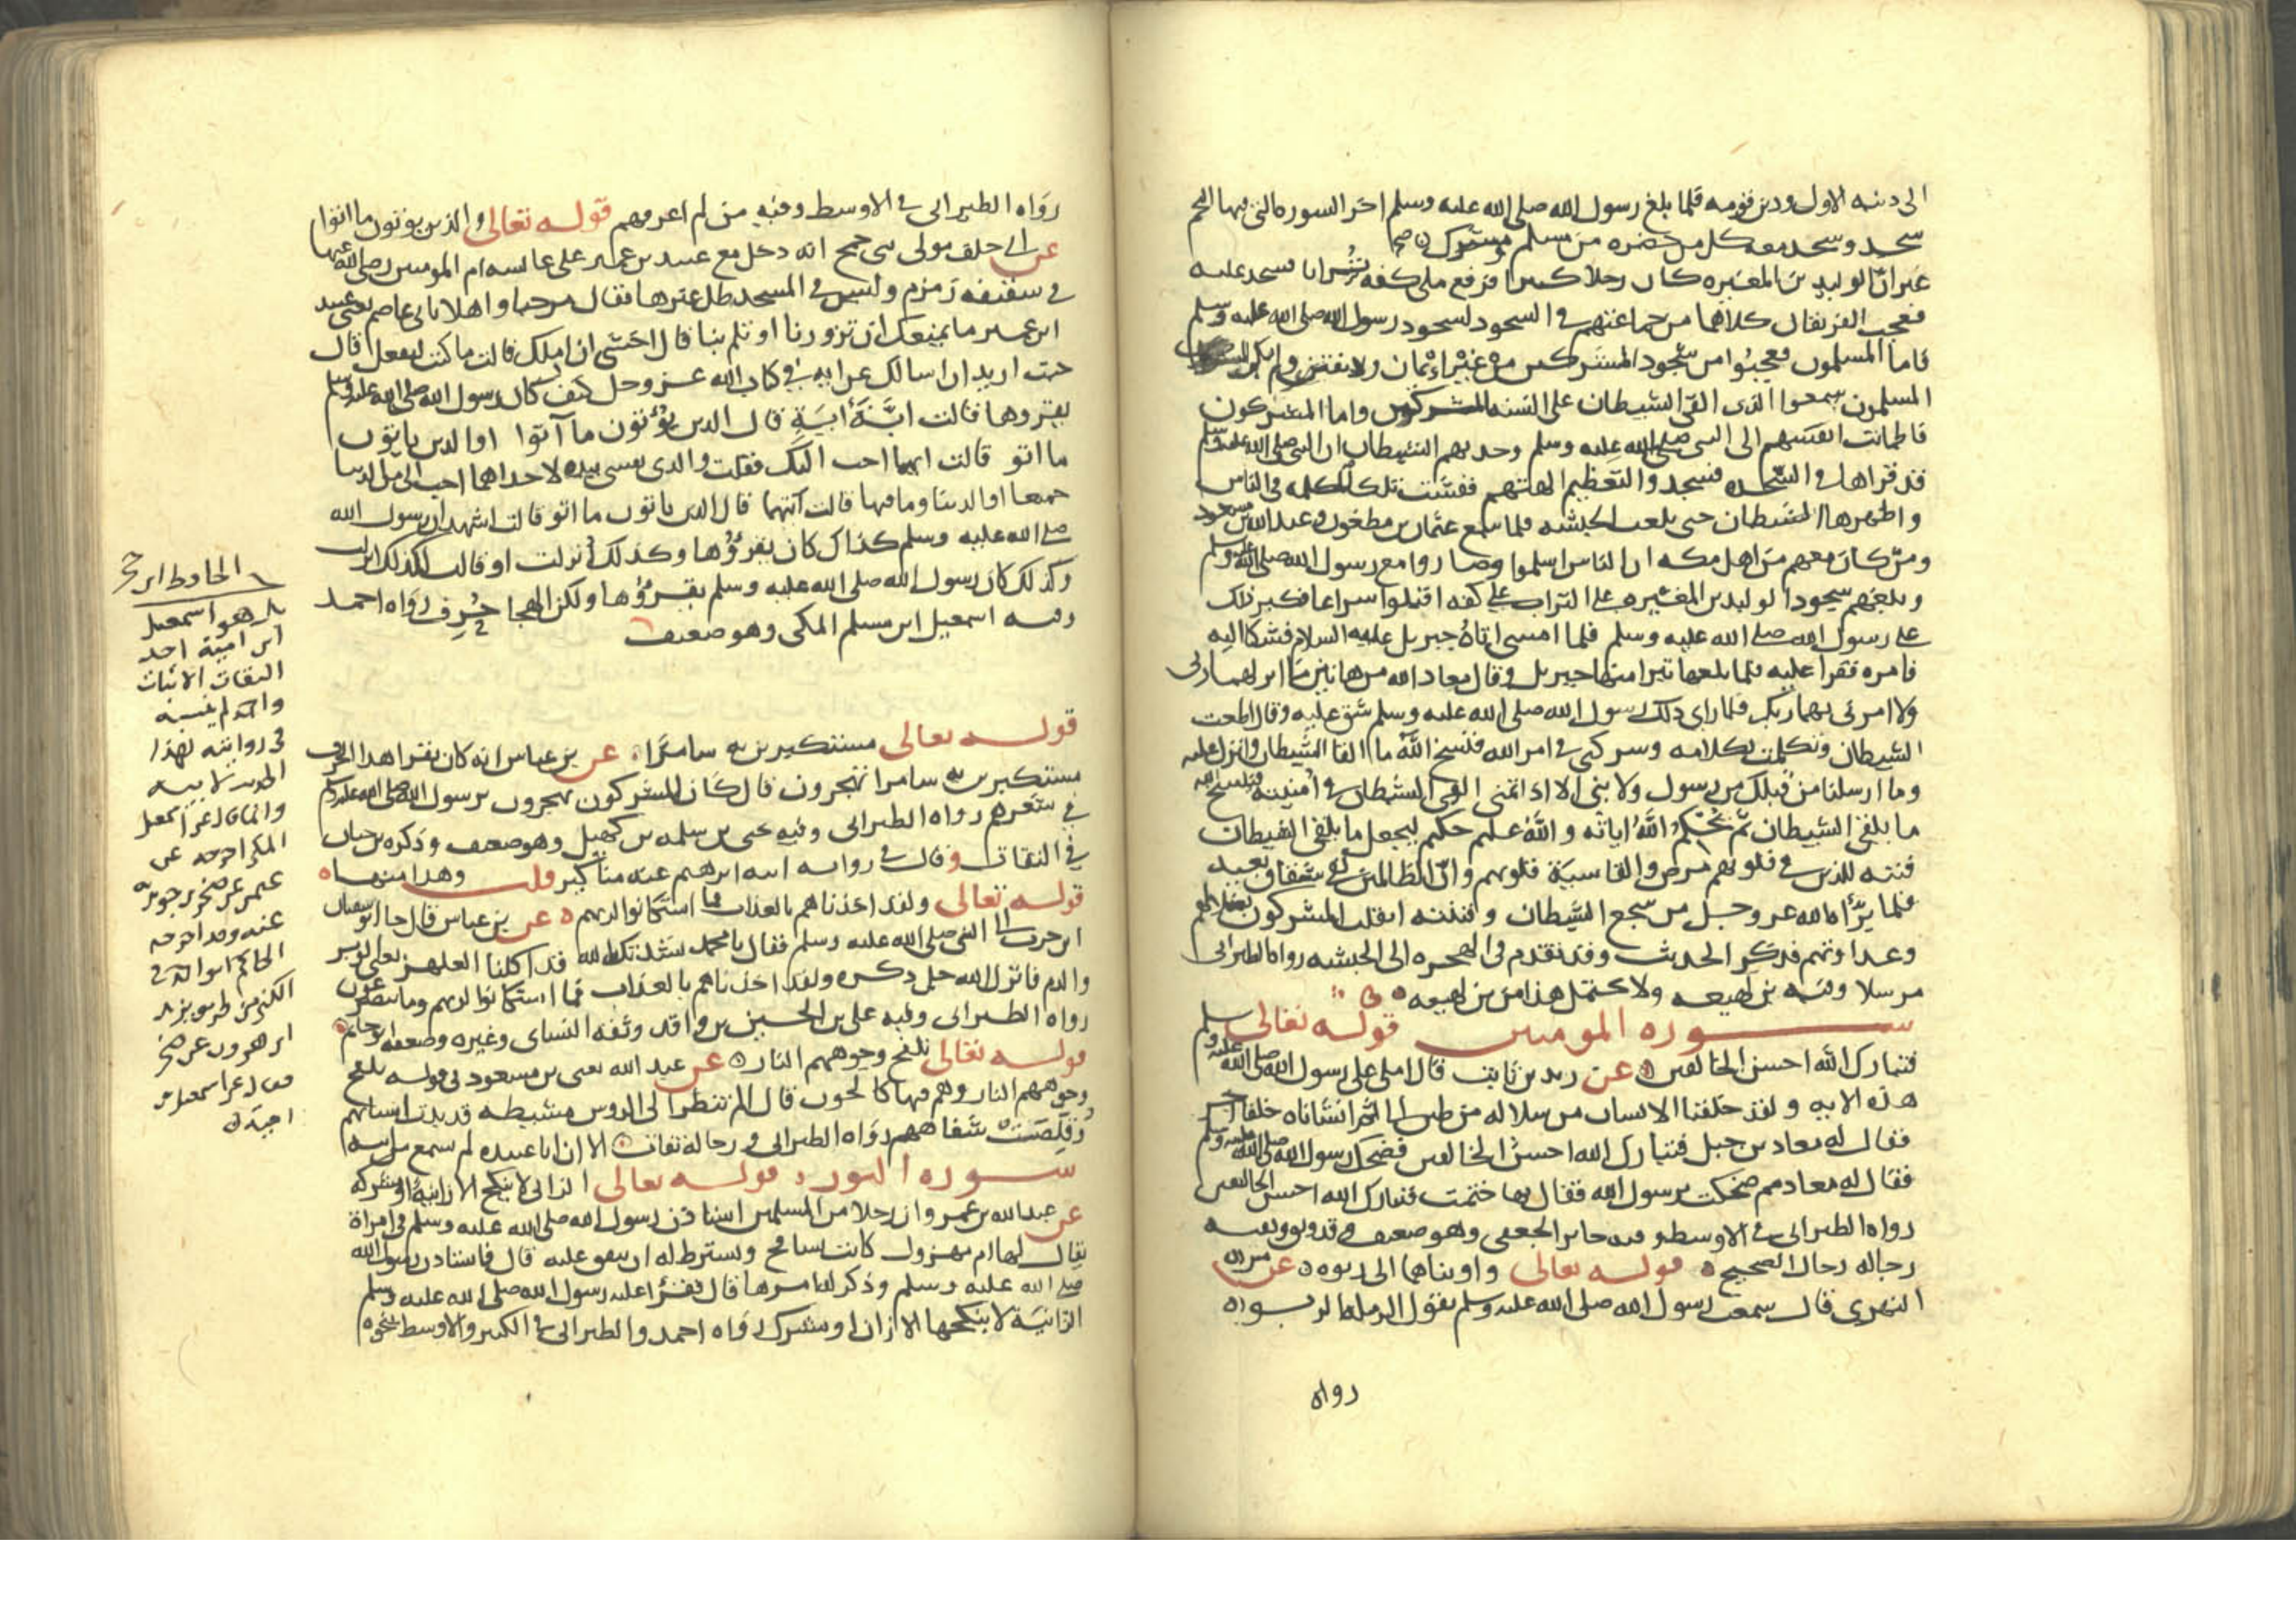 الى دينه الاول ودين قومه فلما بلغ رسول الله صلى الله عليه وسلم اخر السورة التي فيها النجم
سجد وسجد معه كل من حضره من مسلم ومشرك
غير ان الوليد بن المغيره كان رجلا كبيرا فرفع ملى كفه ترابا فسجد عليه
فعجب الفريقان كلاهما من جماعتهم في السجود لسجود رسول الله صلى الله عليه وسلم
فاما المسلمون فعجبوا من سجود المشركين من غير ايمان ولا يقين ولم يكن
المسلمون سمعوا الذي القى الشيطان على السنه المشركين واما المشركون
فاطمانت انفسهم الى النبي صلى الله عليه وسلم وحدثهم الشيطان ان النبي صلى الله عليه وسلم
قد قراها في السجده فسجدوا لتعظيم الهتهم ففشت تلك الكلمه في الناس
واظهرها الشيطان حتى بلغت الحبشه فلما سمع عثمان بن مظعون وعبد الله بن مسعود
ومن كان معهم من اهل مكه ان الناس اسلموا وصاروا مع رسول الله صلى الله عليه وسلم
وبلغهم سجود الوليد بن المغيره على التراب على كفه اقبلوا سراعا فكبر ذلك
على رسول الله صلى الله عليه وسلم فلما امسى اتاه جبريل عليه السلام فشكا اليه
فامره فقرا عليه فلما بلغها تبرا منها جبريل وقال معاذ الله من هاتين ما انزلهما ربي
ولا امرني بهما ربك فلما راى ذلك رسول الله صلى الله عليه وسلم شق عليه وقال اطعت
الشيطان وتكلمت بكلامه وشركني في امر الله فنسخ الله ما القا الشيطان وانزل عليه
وما ارسلنا من قبلك من رسول ولا نبي الا اذا تمنى القى الشيطان في امنيته فينسخ الله
ما يلقي الشيطان ثم يحكم الله اياته والله عليم حكيم ليجعل ما يلقي الشيطان
فتنه للذين في قلوبهم مرض والقاسية قلوبهم وان الظالمين لفي شقاق بعيد
فلما برأه الله عز وجل من سجع الشيطان وفتنته انقلب المشركون بضلالهم
وعداوتهم فذكر الحديث وقد تقدم في الهجره الى الحبشه رواه الطبراني
مرسلا وفيه بن لهيعه ولا يحتمل هذا من بن لهيعه
سوره المومنين قوله تعالى
فتبارك الله احسن الخالقين عن زيد بن ثابت قال املى علي رسول الله صلى الله عليه وسلم
هذه الايه ولقد خلقنا الانسان من سلاله من طين الى ثم انشاناه خلقا اخر
فقال له معاذ بن جبل فتبارك الله احسن الخالقين فضحك رسول الله صلى الله عليه وسلم
فقال له معاذ مم ضحكت يرسول الله فقال بها ختمت فتبارك الله احسن الخالقين
رواه الطبراني في الاوسط وفيه جابر الجعفي وهو ضعيف وقد وثق وبقيه
رجاله رجال الصحيح قوله تعالى واويناهما الى ربوه عن مره
النهري قال سمعت رسول الله صلى الله عليه وسلم يقول الرمله الربوه
رواه
رواه الطبراني في الاوسط وفيه من لم اعرفهم قوله تعالى والذين يوتون ما اتوا
عن ابي خلف مولى بني جمح انه دخل مع عبيد بن عمير على عايشه ام المومنين رضي الله عنها
في سقيفه زمزم وليس في المسجد ظل غيرها فقال مرحبا واهلا بابي عاصم يعني عبيد
ابن عمير ما يمنعك ان تزورنا او تلم بنا قال اخشى ان املك قالت ما كنت لتفعل قال
جيت اريد ان اسالك عن ايه في كتاب الله عز وجل كيف كان رسول الله صلى الله عليه وسلم
يقروها قالت ايّة اية قال الذين يؤتون ما آتوا او الذين ياتون
ما اتو قالت ايهما احب اليك فقلت والذي نفسي بيده لاحداهما احب الي من الدنيا
جميعا او الدنيا وما فيها قالت ايتهما قال الذين ياتون ما اتو قالت اشهد ان رسول الله
صلى الله عليه وسلم كذاك كان يقرؤها وكذلك انزلت او قالت لكذلك انزلت
وكذلك كان رسول الله صلى الله عليه وسلم يقرؤها ولكن الهجا حُرِف رواه احمد
وفيه اسمعيل ابن مسلم المكي وهو ضعيف
قوله تعالى مستكبرين به سامرا عن بن عباس انه كان يقرا هذا الحرف
مستكبرين به سامرا تهجرون قال كان المشركون يهجرون برسول الله صلى الله عليه وسلم
في شعرهم رواه الطبراني وفيه يحيى بن سلمه بن كهيل وهو ضعيف وذكره بن حبان
في الثقات وقال في روايه ابنه ابرهيم عنه مناكير قلت وهذا منها
قوله تعالى ولقد اخذناهم بالعذاب فما استكانوا لربهم عن بن عباس قال جا ابو سفيان
ابن حرب الى النبي صلى الله عليه وسلم فقال يا محمد نشدتك بالله قد اكلنا العلهز يعني الوبر
والدم فانزل الله جل ذكره ولقد اخذناهم بالعذاب فما استكانوا لربهم وما يتضرعون
رواه الطبراني وفيه علي بن الحسين بن واقد وثقه النساي وغيره وضعفه ابو حاتم
قوله تعالى تلفح وجوههم النار عن عبد الله يعني بن مسعود في قوله تلفح
وجوههم النار وهم فيها كالحون قال الم تنظر الى الروس مشيطه قد بدت اسنانهم
وقلصت شفاههم رواه الطبراني ورجاله ثقات الا ان ابا عبيده لم يسمع من ابيه
سوره النور قوله تعالى الزاني لا ينكح الا زانية او مشركه
عن عبد الله بن عمرو ان رجلا من المسلمين استاذن رسول الله صلى الله عليه وسلم في امراة
يقال لها ام مهزول كانت تسافح وتشترط له ان تنفق عليه قال فاستاذن رسول الله
صلى الله عليه وسلم وذكر له امرها قال فقرا عليه رسول الله صلى الله عليه وسلم
الزانية لا ينكحها الا زان او مشرك رواه احمد والطبراني في الكبير والاوسط بنحوه
الحافظ ابن حجر
بل هو اسمعيل
ابن امية احد
الثقات الاثبات
واحمد لم ينسبه
في روايته لهذا
الحديث لابيه
وانما قال عن اسمعيل
المكي اخرجه عن
عنه وقد اخرجه
الحاكم ابو احمد في
الكنى من طريق يزيد
ابن هرون عن صخر
فقال عن اسمعيل بن
امية